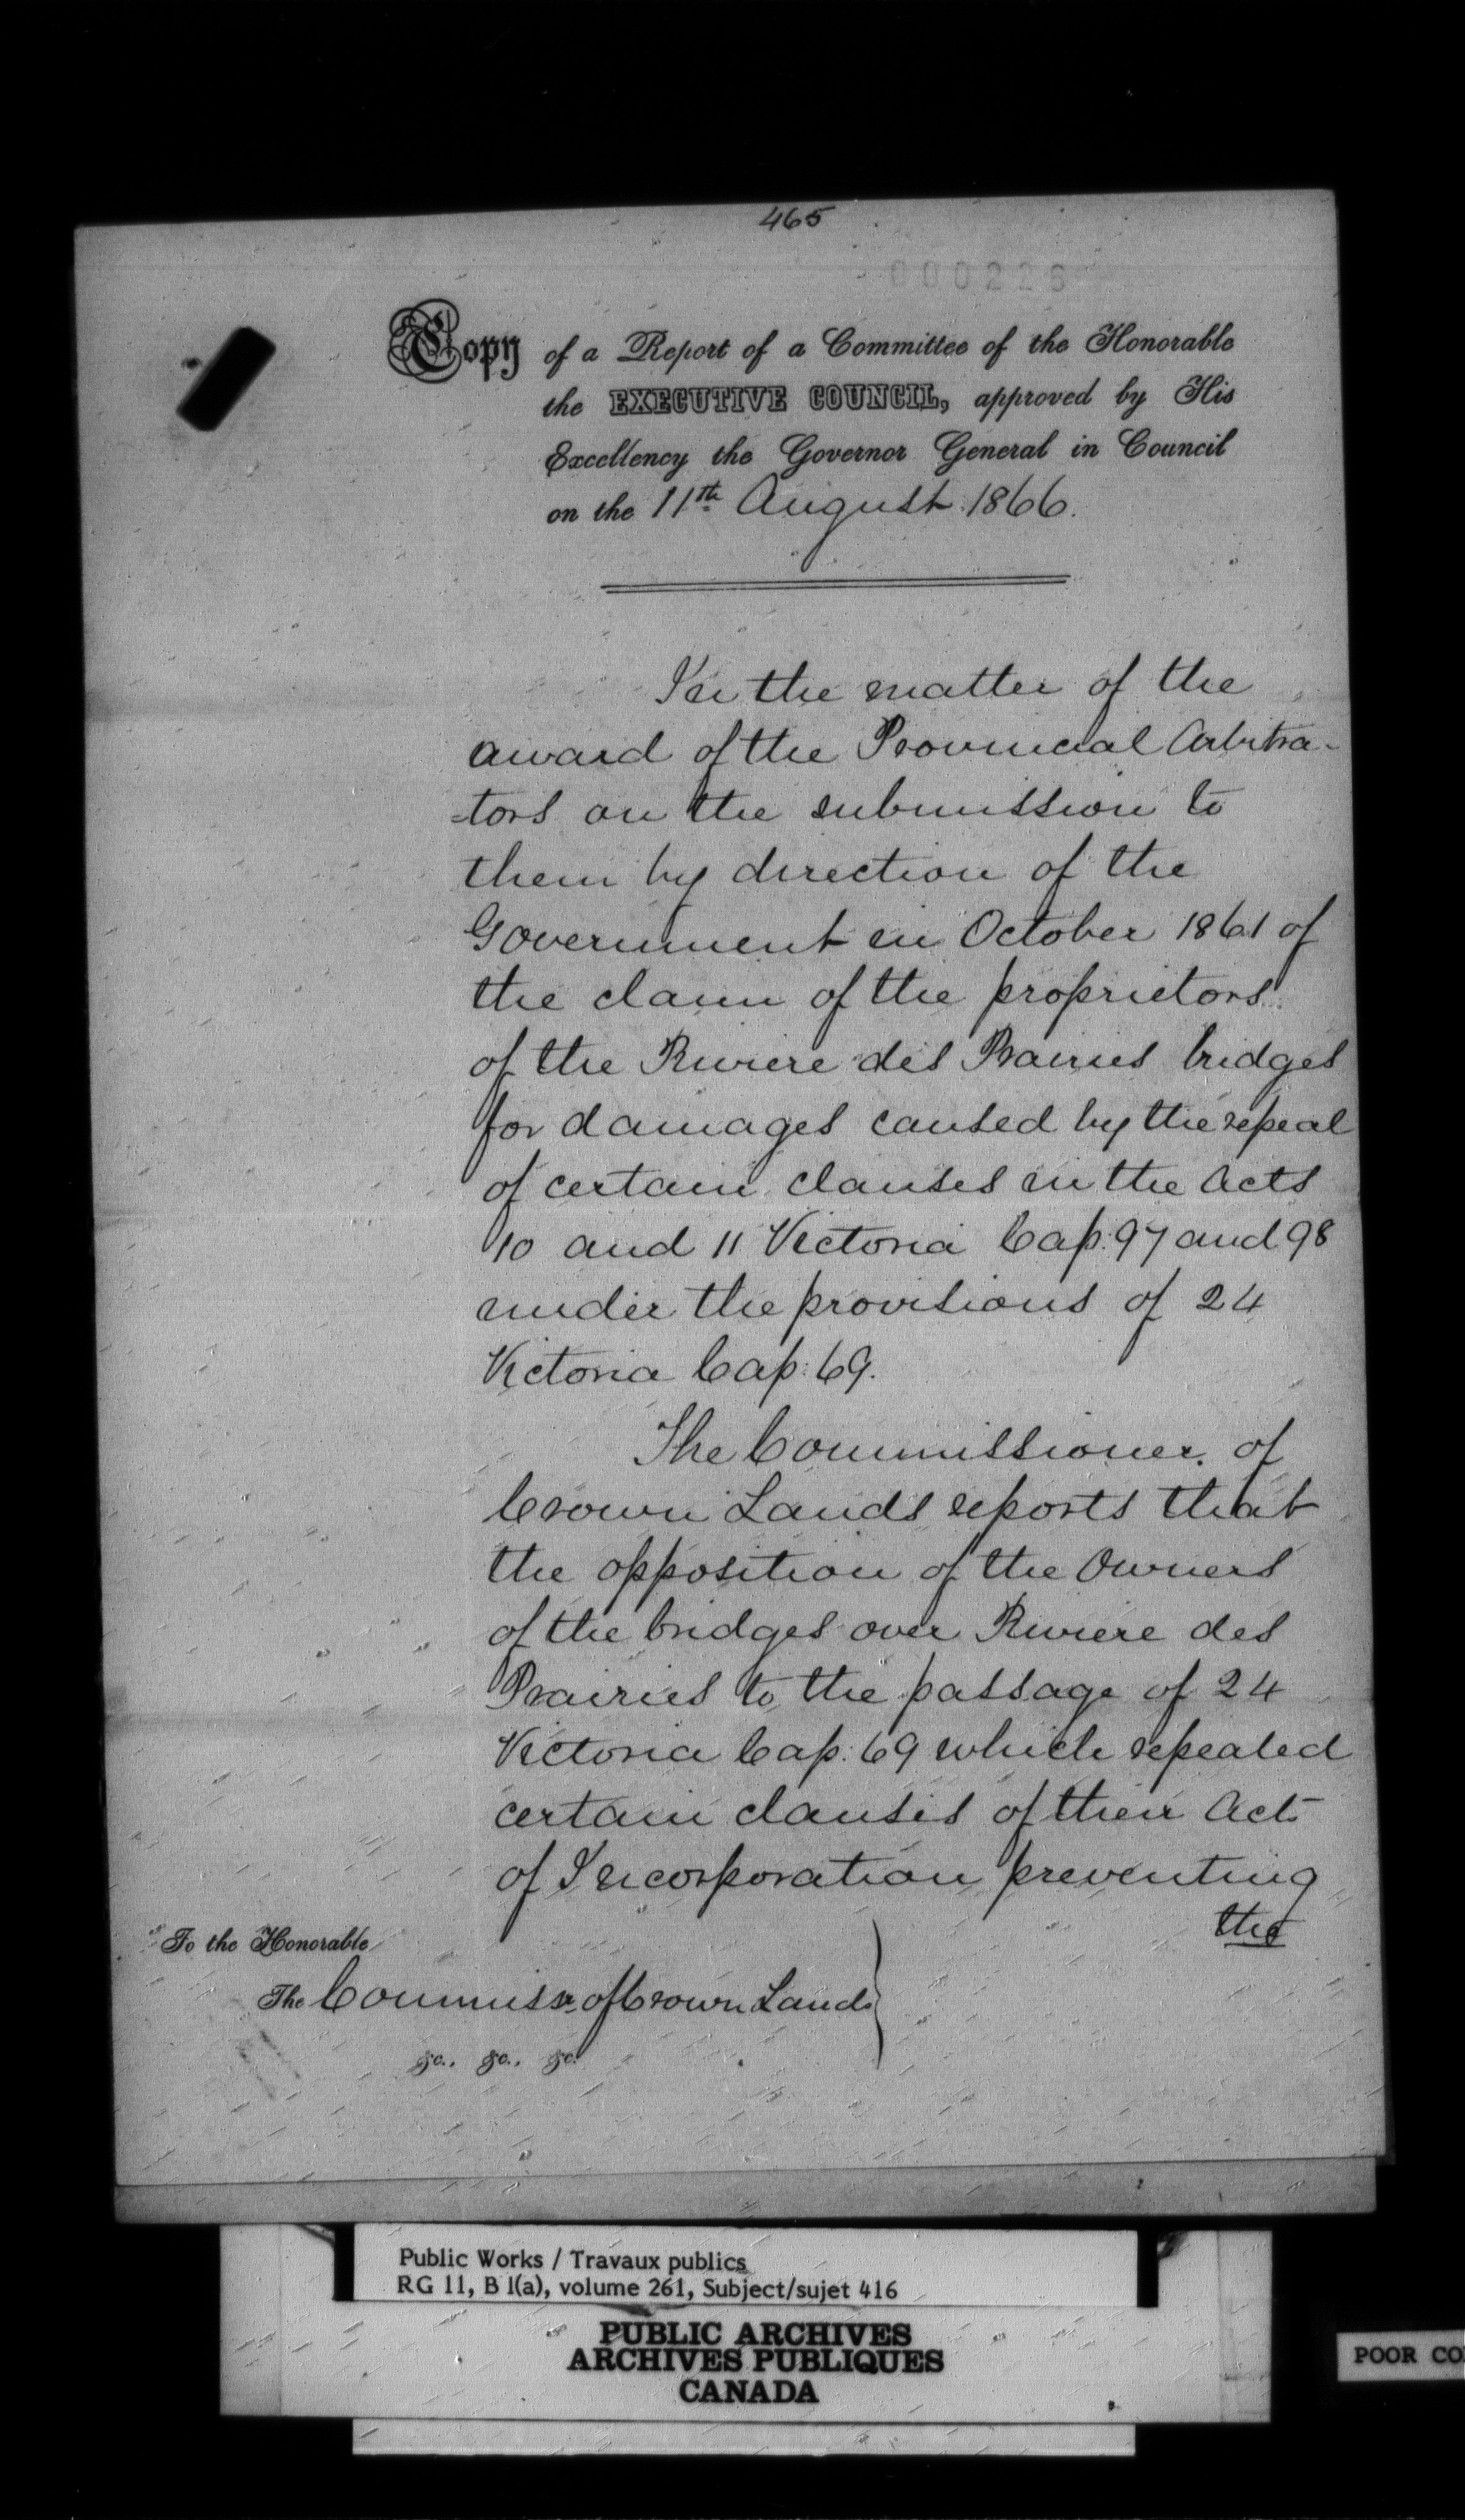 465
000226
Copy of a Report of a Committee of the Honorable
the EXECUTIVE COUNCIL, approved by His
Excellency the Governor General in Council
on the 11th August 1866.
In the matter of the
award of the Provincial Arbitra-
-tors on the submission to
them by direction of the
Government in October 1861 of
the claim of the proprietors
of the Riviere des Prairies bridges
for damages caused by the repeal
of certain clauses in the Acts
10 and 11 Victoria Cap: 97 and 98
under the provisions of 24
Victoria Cap: 69.
The Commissioner of
Crown Lands reports that
the opposition of the Owners
of the bridges over Riviere des
Prairies to the passage of 24
Victoria Cap: 69 which repealed
certain clauses of their Act
of Incorporation preventing
the
To the Honorable
The Commissr of Crown Lands
&c., &c., &c.
Public Works / Travaux publics
RG 11, B 1(a), volume 261, Subject/sujet 416
PUBLIC ARCHIVES
ARCHIVES PUBLIQUES
CANADA
POOR CO